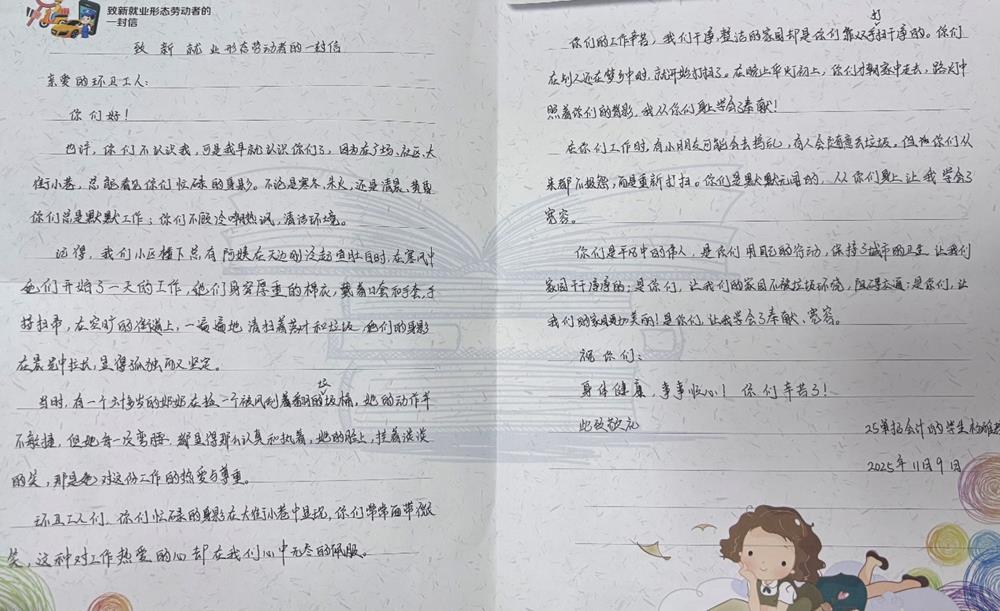 致新就业形态劳动者的
一封信
致新就业形态劳动者的一封信
亲爱的环卫工人：
你们好！
也许，你们不认识我，可是我早就认识你们了，因为在广场、社区、大
街小巷，总能看见你们忙碌的身影。不论是寒冬、炎火，还是清晨、黄昏
你们总是默默工作；你们不顾冷嘲热讽，清洁环境。
记得，我们小区楼下总有阿姨在天边刚泛起鱼肚白时，在寒风中
她们开始了一天的工作，她们身穿厚重的棉衣，戴着口套和手套，手
持扫帚，在空旷的街道上，一遍遍地清扫着落叶和垃圾，他们的身影
在晨光中拉长，显得孤独而又坚定。
当时，有一个六十多岁的奶奶在捡一个被风刮着翻的垃圾桶，她的动作并
不敏捷，但她每一次弯腰，都显得那么认真和执着，她的脸上，挂着淡淡
的笑，那是她对这份工作的热爱与尊重。
环卫工人们，你们忙碌的身影在大街小巷中显现，你们常常面带微
笑，这种对工作热爱的心却在我们心中无尽的佩服。
你们的工作辛苦，我们干净整洁的家园却是你们靠双手打扫干净的。你们
在别人还在梦乡中时，就开始打扫了。在晚上华灯初上，你们才朝家中走去，路灯中
照着你们的背影，我从你们身上学会了奉献！
在你们工作时，有小朋友可能会去捣乱，有人会随意丢垃圾，但是你们从
来都不抱怨，而是重新打扫。你们是默默无闻的，从你们身上让我学会了
宽容。
你们是平凡中的伟人，是你们用自己的行动，保持了城市的卫生，让我们
家园干干净净的；是你们，让我们的家园不被垃圾环绕，阻碍交通；是你们，让
我们的家园更加美丽！是你们，让我学会了奉献、宽容。
祝你们：
身体健康，事事顺心！你们辛苦了！
此致敬礼
25单招会计的学生
2025年11月9日